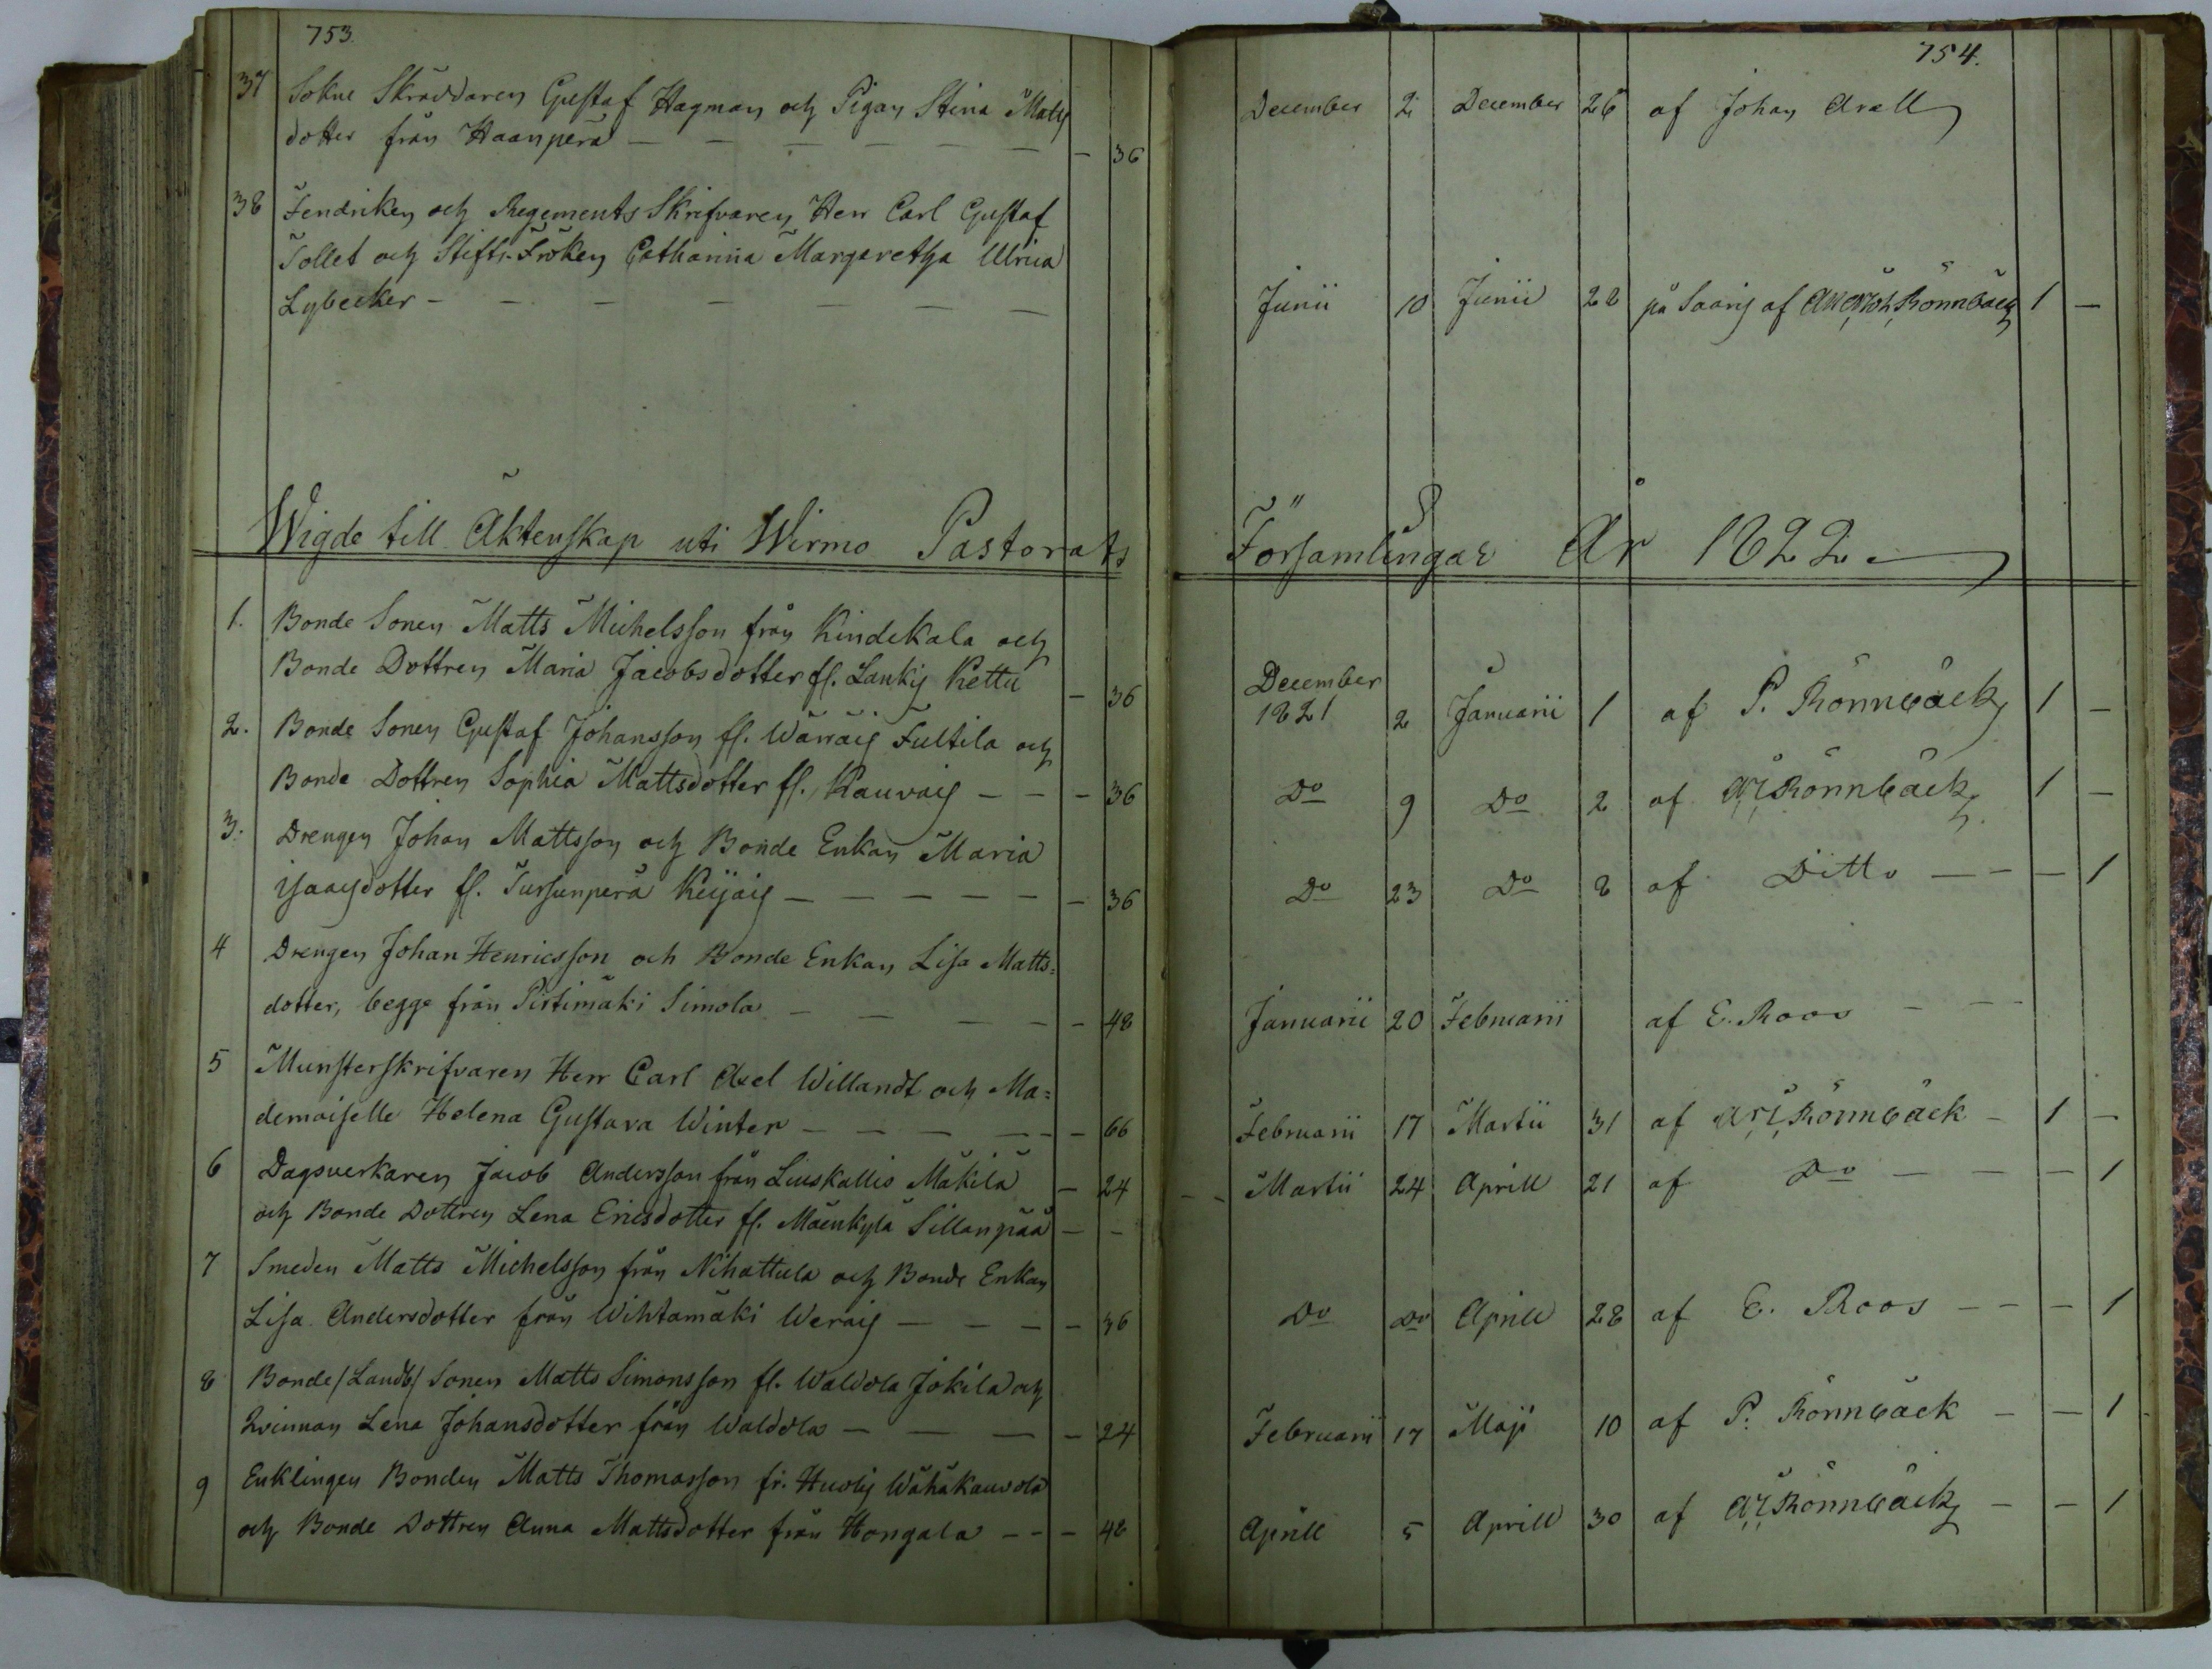 753.
37 Sokne Skräddaren Gustaf Hagman och Pigan Stina Matts
dotter från Haanperä — — — — — — — 36
38 Fendriken och Regements Skrifvaren Herr Carl Gustaf
Tollet och Stifts-Fröken Catharina Margaretha Ulrica
Lybecker — — — — — —
Wigde till Äktenskap uti Wirmo Pastorats
1. Bonde Sonen Matts Michelsson från Kindekala och
Bonde Dottren Maria Jacobsdotter fl. Lankis Kettu — 36
2. Bonde Sonen Gustaf Johansson fl. Wäräis Fultila och
Bonde Dottren Sophia Mattsdotter fl. Kauvais — — — 36
3. Drengen Johan Mattsson och Bonde Enkan Maria
Isaacsdotter fl. Tursunperä Keijais — — — — — — 36
4 Drengen Johan Henricsson och Bonde Enkan Lisa Matts=
dotter, begge från Pirtimäki Simola — — — — — 48
5 Munsterskrifvaren Herr Carl Axel Willandt och Ma=
demoiselle Helena Gustava Winter — — — — — — 66
6 Dagsverkaren Jacob Andersson från Liuskallio Mäkilä — 24
och Bonde Dottren Lena Ericsdotter fl. Mäenkylä Sillanpää — —
7 Smeden Matts Michelsson från Nihattula och Bonde Enkan
Lisa Andersdotter från Wihtamäki Werais — — — — 36
8 Bonde /Landb/ Sonen Matts Simonsson fl. Waldola Jokila och
Qvinnan Lena Johansdotter från Waldola — — — — 24
9 Enklingen Bonden Matts Thomasson fr. Huolis Wähäkauvola
och Bonde Dottren Anna Mattsdotter från Hongala — — — 48
754.
December 2 December 26 af Johan Arell
Junii 10 Junii 28 på Saaris af Rönnbäck 1 —
Församlingar År 1822
December
1821 2 Januarii 1 af P. Rönnbäck 1 —
Do 9 Do 2 af Rönnbäck 1 —
Do 23 Do 8 af Ditto — — — 1
Januarii 20 Februarii af E. Roos — — —
Februarii 17 Martii 31 af Rönnbäck — 1 —
Martii 24 Aprill 21 af Do — — — 1
Do Do Aprill 28 af E. Roos — — — 1
Februarii 17 Maji 10 af P. Rönnbäck — — 1
Aprill 5 Aprill 30 af Rönnbäck — — 1